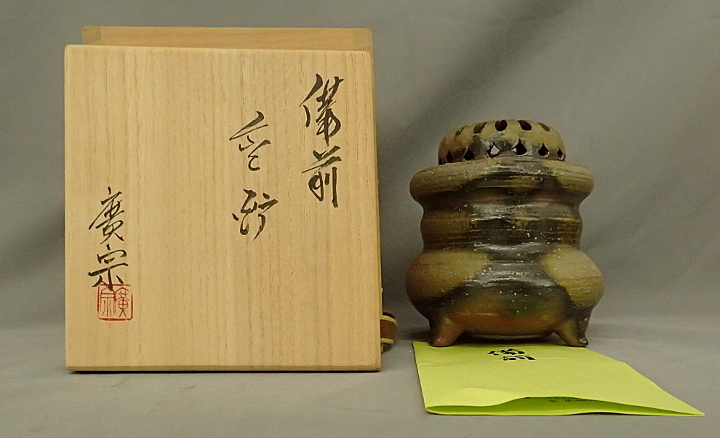 備前
香炉
廣宗
廣宗
備前